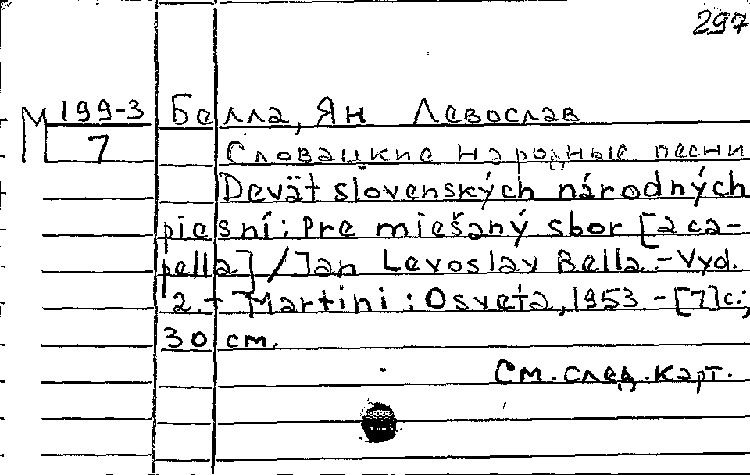 297
М 199-3 Белла, Ян Левослав
7 Словацкие народные песни
Devät slovenských národných
piesní: Pre miešaný sbor [a ca-
pella] / Jan Levoslav Bella. - Vyd.
2. - Martini: Osveta, 1953 - [7]с.;
30 cm.
См. след. карт.